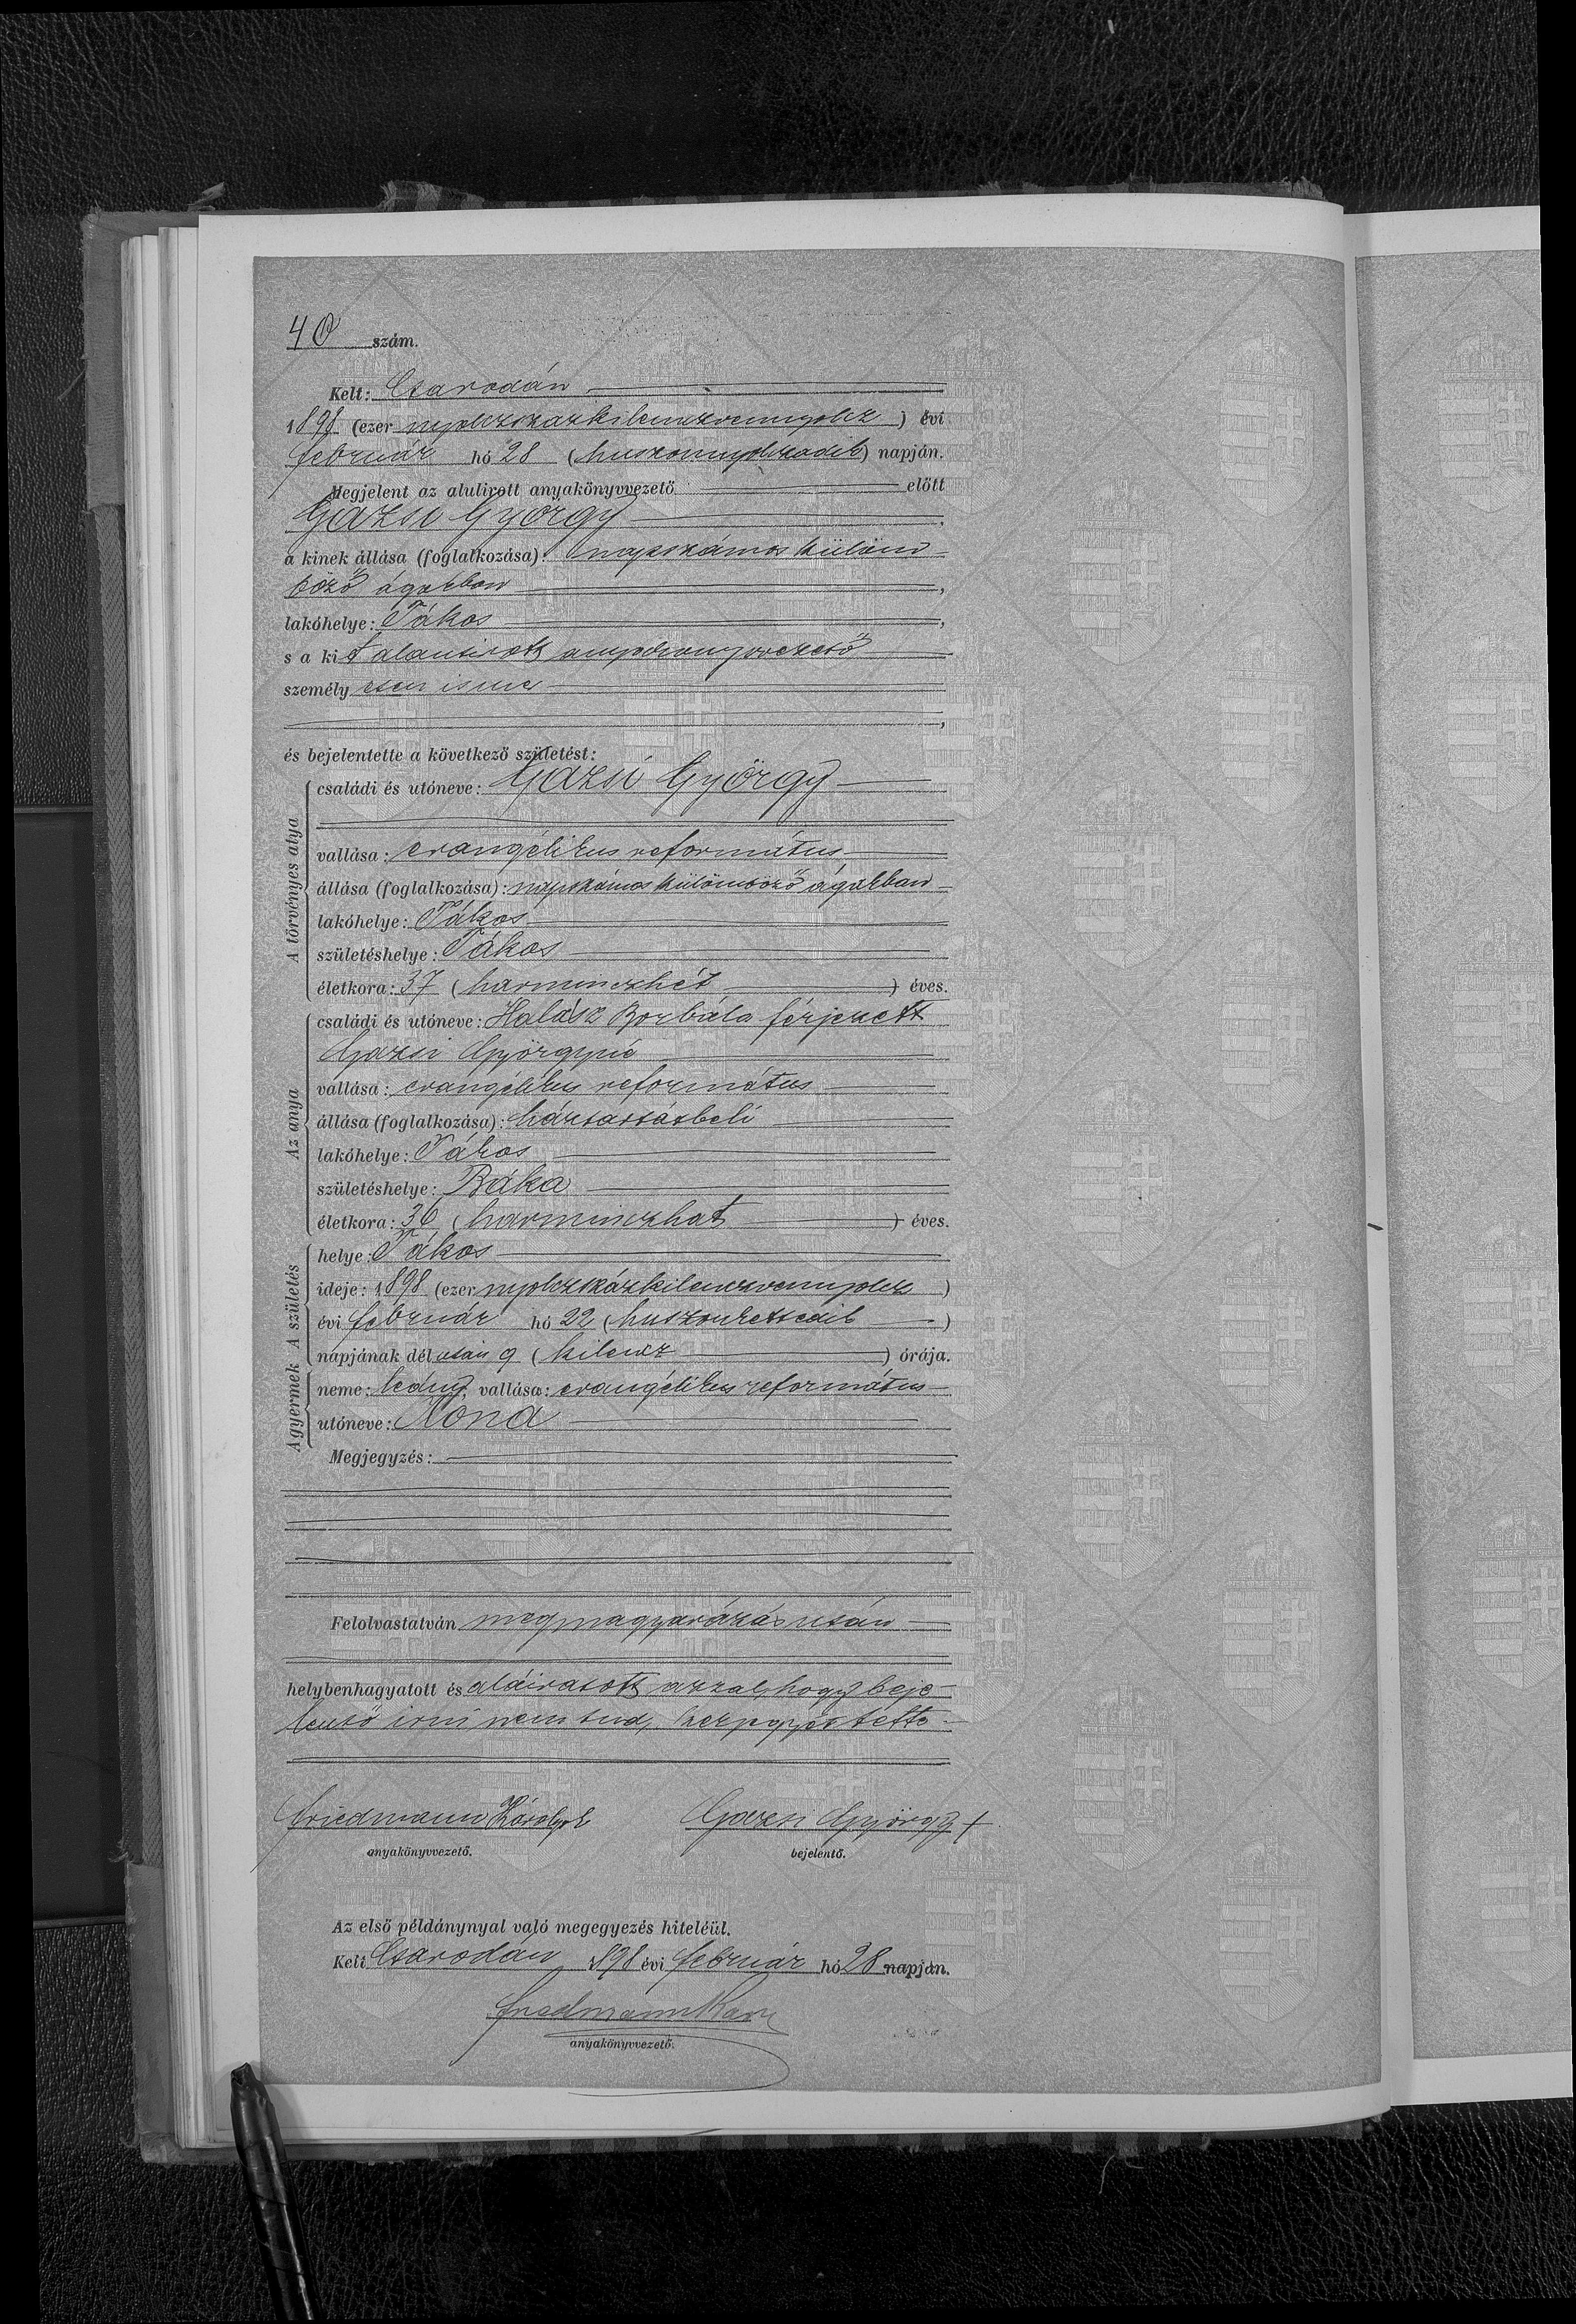 40 szám.
Kelt: Csarodán
1898 (ezer nyolczszázkilenczvennyolcz) évi
február hó 28 (huszonnyolczadik) napján.
Megjelent az alulirott anyakönyvvezető előtt
Gazsi György,
a kinek állása (foglalkozása): napszámos külöm-
böző ágakban,
lakóhelye: Tákos,
s a kit alantirott anyakönyvvezető
személyesen ismer
,
és bejelentette a következő születést:
A törvényes atya
családi és utóneve: Gazsi György
vallása: evangélikus református
állása (foglalkozása): napszámos külömböző ágakban
lakóhelye: Tákos
születéshelye: Tákos
életkora: 37 (harminczhét) éves.
Az anya
családi és utóneve: Halász Borbála férjezett
Gazsi Györgyné
vallása: evangélikus református
állása (foglalkozása): háztartásbeli
lakóhelye: Tákos
születéshelye: Báka
életkora: 36 (harminczhat) éves.
A születés
helye: Tákos
ideje: 1898 (ezer nyolczszázkilenczvennyolcz)
évi február hó 22 (huszonkettedik)
napjának délután 9 (kilencz) órája.
A gyermek
neme: leány, vallása: evangélikus református
utóneve: Ilona
Megjegyzés:
Felolvastatván megmagyarázás után
helybenhagyatott és aláiratott azzal, hogy beje-
lentő irni nem tud, kézjegyét tette.
Friedmann Károly sk Gazsi György +
anyakönyvvezető. bejelentő.
Az első példánynyal való megegyezés hiteléül.
Kelt Csarodán 1898 évi február hó 28 napján.
Friedmann Károly
anyakönyvvezető.